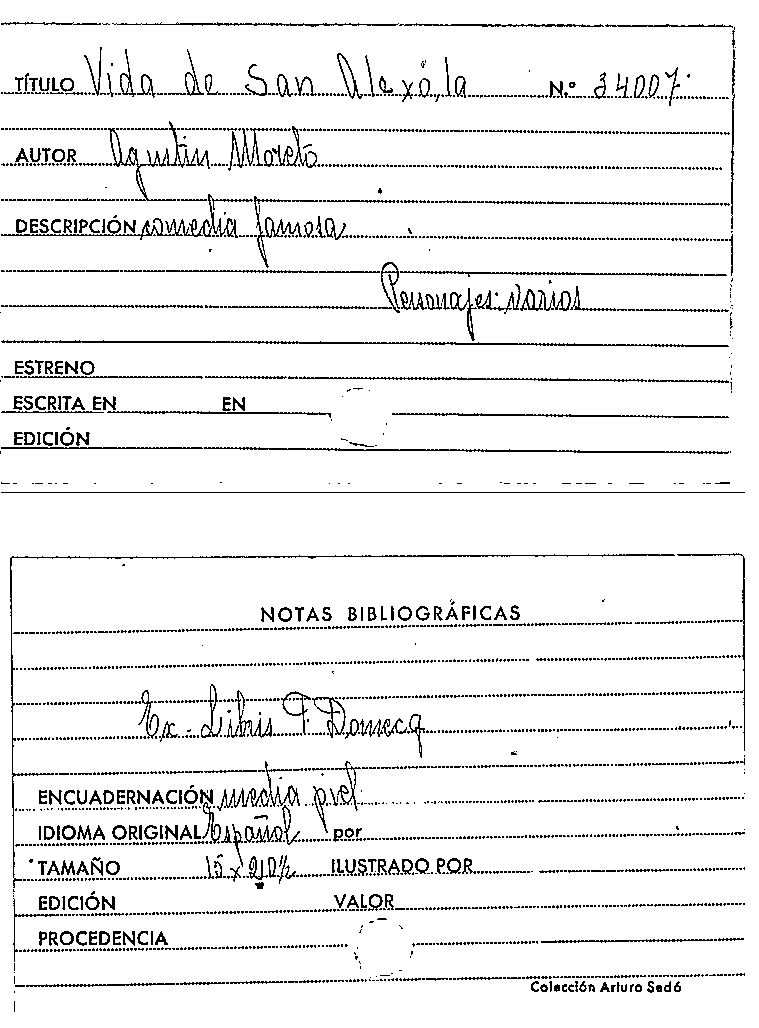 TÍTULO Vida de San Alexó, la N.º 34007
AUTOR Agustín Moreto
DESCRIPCIÓN comedia famosa
Personajes: varios
ESTRENO
ESCRITA EN EN
EDICIÓN
NOTAS BIBLIOGRÁFICAS
Ex-Libris P. Domecq
ENCUADERNACIÓN media piel
IDIOMA ORIGINAL Español por
TAMAÑO 15 x ILUSTRADO POR
EDICIÓN VALOR
PROCEDENCIA
Colección Arturo Sedó